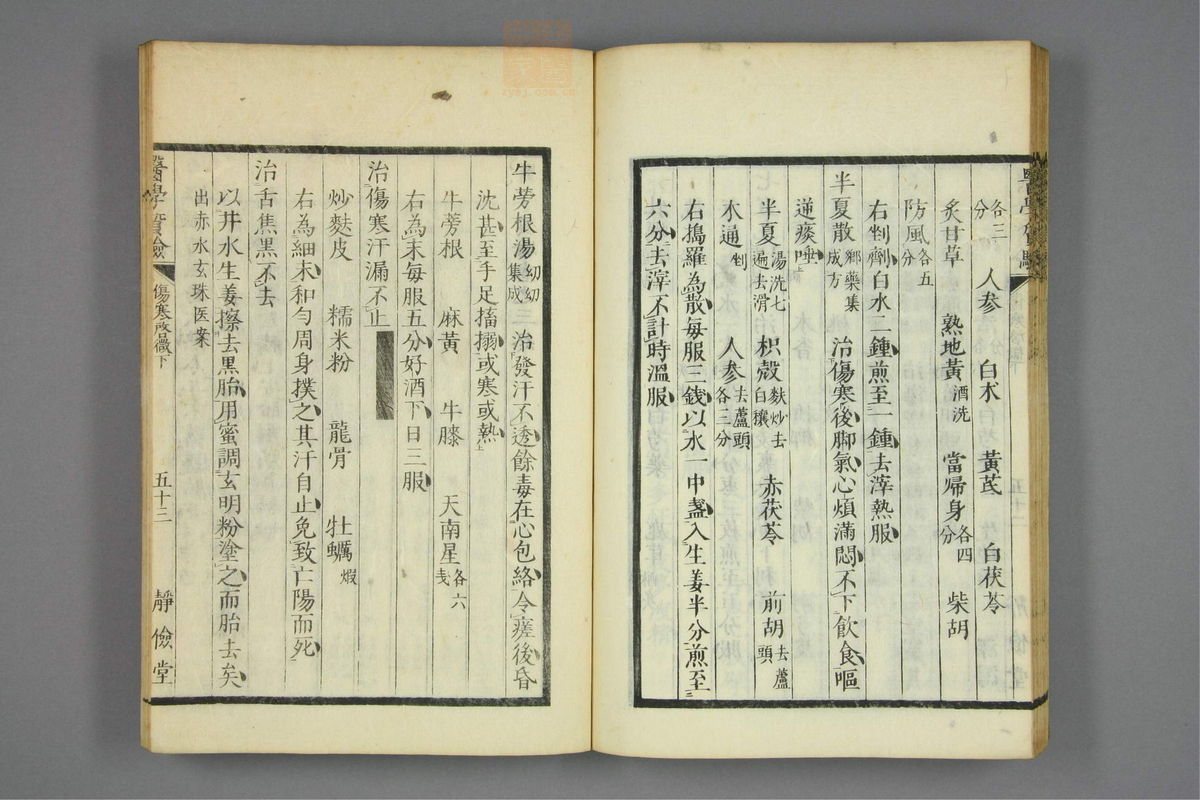 人参　白朮　黃芪　白茯苓各三分
炙甘草　熟地黃酒洗　當帰身各四分　柴胡
防風各五分
右剉劑白水二鍾煎至一鍾去滓熱服
半夏散鄉藥集成方　治傷寒後脚氣心煩滿悶不下飲食嘔
逆痰唾上
半夏湯洗七遍去滑　枳殼麩炒去白穰　赤茯苓　前胡去蘆頭
木通剉　人参去蘆頭各三分
右搗羅為散每服三錢以水一中盞入生姜半分煎至
六分去滓不計時溫服
牛蒡根湯幼幼集成三　治發汗不透餘毒在心包絡令瘥後昏
沈甚至手足搐搦或寒或熱上
牛蒡根　麻黃　牛膝　天南星各六戔
右為末每服五分好酒下日三服
治傷寒汗漏不止
炒麩皮　糯米粉　龍骨　牡蠣煆
右為細末和勻周身撲之其汗自止免致亡陽而死
治舌焦黒不去
以井水生姜擦去黒胎用蜜調玄明粉塗之而胎去矣
出赤水玄珠医案
醫學資儉　傷寒啓微下　五十三　靜儉堂